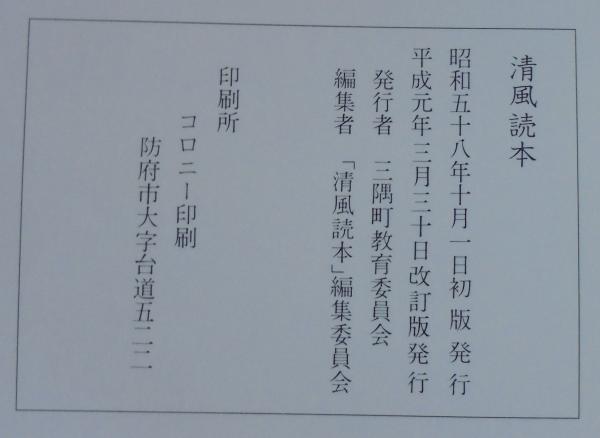 清風読本
昭和五十八年十月一日初版発行
平成元年三月三十日改訂版発行
発行者　三隅町教育委員会
編集者　「清風読本」編集委員会
印刷所
コロニー印刷
防府市大字台道五二二